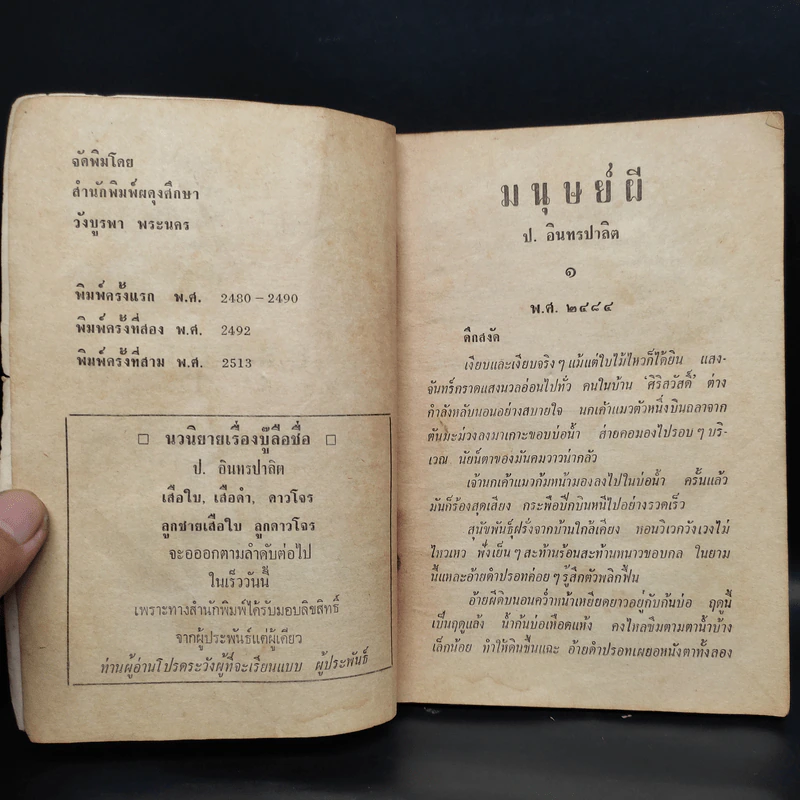 จัดพิมโดย
สำนักพิมพ์ผดุงศึกษา
วังบูรพา พระนคร
พิมพ์ครั้งแรก พ.ศ. 2480 - 2490
พิมพ์ครั้งที่สอง พ.ศ. 2492
พิมพ์ครั้งที่สาม พ.ศ. 2513
□ นวนิยายเรื่องบู๊ลือชื่อ □
ป. อินทรปาลิต
เสือใบ, เสือดำ, ดาวโจร
ลูกชายเสือใบ ลูกดาวโจร
จะอออกตามลำดับต่อไป
ในเร็ววันนี้
เพราะทางสำนักพิมพ์ได้รับมอบลิขสิทธิ์
จากผู้ประพันธ์แต่ผู้เดียว
ท่านผู้อ่านโปรดระวังผู้ที่จะเรียนแบบ ผู้ประพันธ์
มนุษย์ผี
ป. อินทรปาลิต
๑
พ.ศ. ๒๔๘๔
ดึกสงัด
เงียบและเงียบจริง ๆ แม้แต่ใบไม้ไหวก็ได้ยิน แสง-
จันทร์กราดแสงนวลอ่อนไปทั่ว คนในบ้าน ‘ศิริลวัสดิ์’ ต่าง
กำลังหลับนอนอย่างสบายใจ นกเค้าแมวตัวหนึ่งบินถลาจาก
ต้นมะม่วงลงมาเกาะขอบบ่อน้ำ ส่ายคอมองไปรอบ ๆ บริ-
เวณ นัยน์ตาของมันคมวาวน่ากลัว
เจ้านกเค้าแมวก้มหน้ามองลงไปในบ่อน้ำ ครั้นแล้ว
มันก็ร้องสุดเสียง กระพือปีกบินหนีไปอย่างรวดเร็ว
สุนัขพันธุ์ฝรั่งจากบ้านใกล้เคียง หอนวิเวกวังเวงไม่
ไหวเหว ฟังเย็น ๆ สะท้านร้อนสะท้านหนาวชอบกล ในยาม
นี้แหละอ้ายดำปรอทค่อย ๆ รู้สึกตัวพลิกฟื้น
อ้ายผีดิบนอนคว่ำหน้าเหยียดยาวอยู่กับก้นบ่อ ฤดูนี้
เป็นฤดูแล้ง น้ำก้นบ่อเหือดแห้ง คงไหลซึมตามตาน้ำบ้าง
เล็กน้อย ทำให้ดินชื้นแฉะ อ้ายดำปรอทเผยอหนังตาทั้งสอง